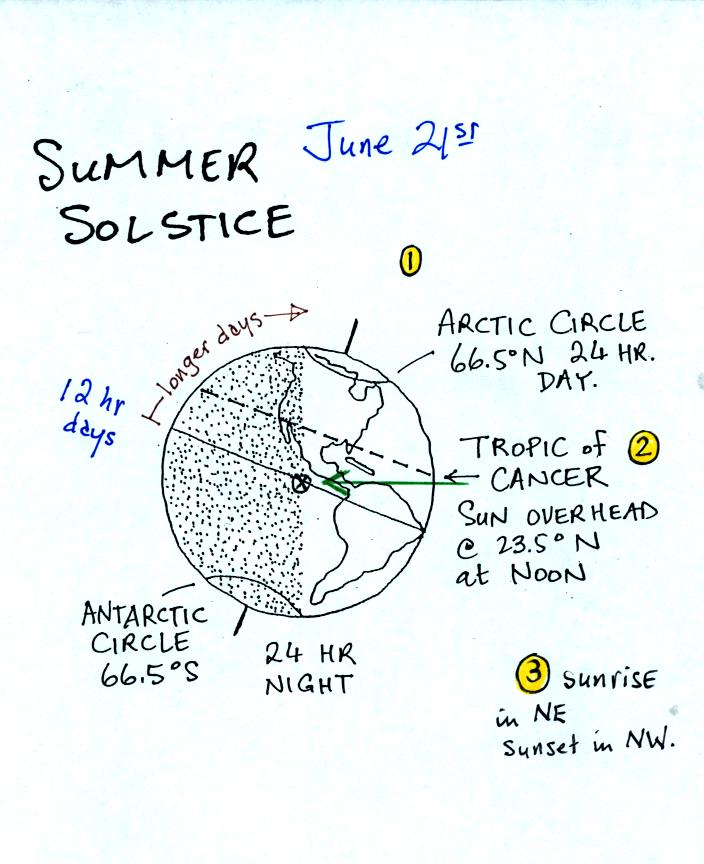 SUMMER
SOLSTICE
June 21st
1
longer days
12 hr
days
ARCTIC CIRCLE
66.5°N 24 HR.
DAY.
TROPIC of 2
CANCER
SUN OVERHEAD
@ 23.5° N
at NOON
ANTARCTIC
CIRCLE
66.5°S
24 HR
NIGHT
3 sunrise
in NE
sunset in NW.